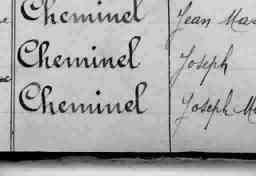 Cheminel Jean
Cheminel Joseph
Cheminel Joseph